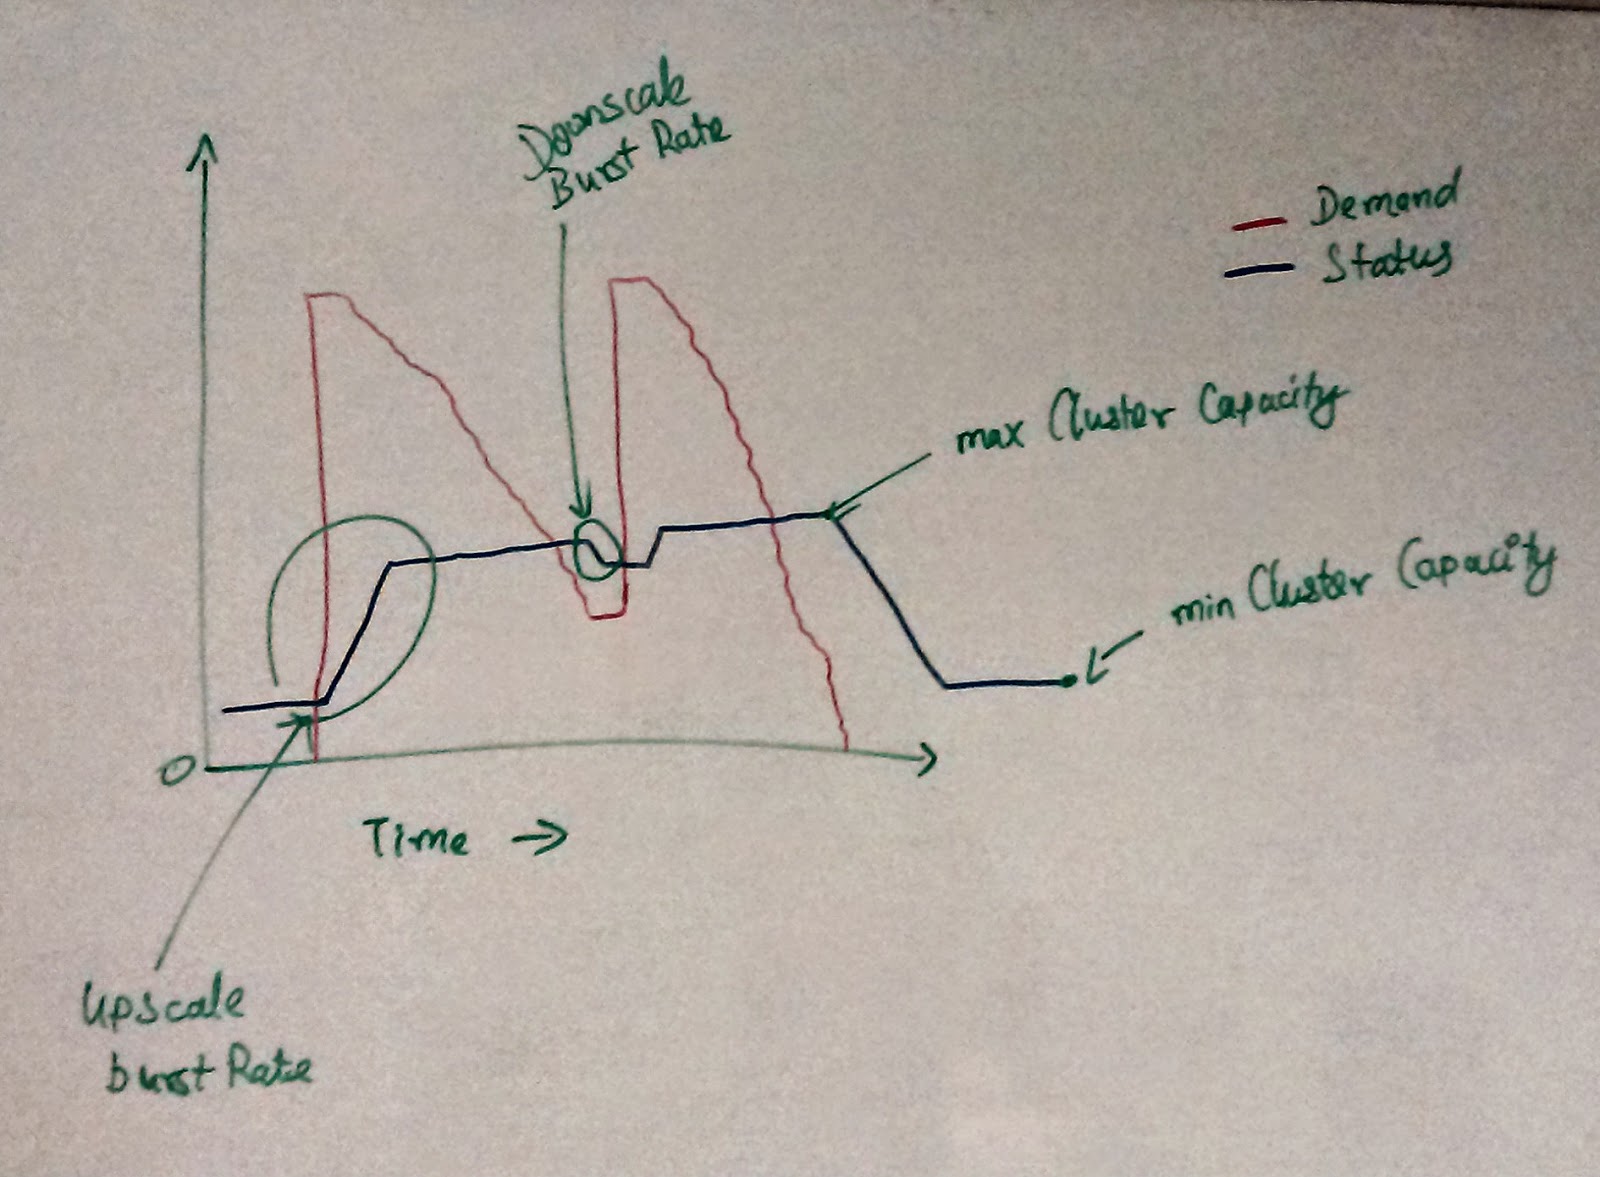 Downscale
Burst Rate
Demand
Status
max Cluster Capacity
min Cluster Capacity
O
Time →
Upscale
burst Rate